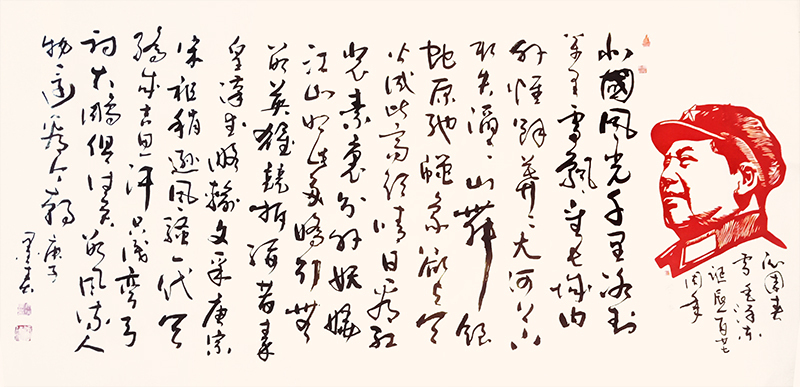 北國風光千里冰封
萬里雪飄望長城内
外惟餘莽々大河上下
頓失滔々山舞銀
蛇原馳蠟象欲与天
公試比高須晴日看红
装素裹分外妖嬈
江山如此多嬌引無
数英雄競折腰惜秦
皇漢武略輸文采唐宗
宋祖稍遜風騷一代天
驕成吉思汗只識彎弓
射大鵰俱往矣数風流人
物還看今朝 庚子
沁園春
雪 毛泽东
誕辰百廿七
周年